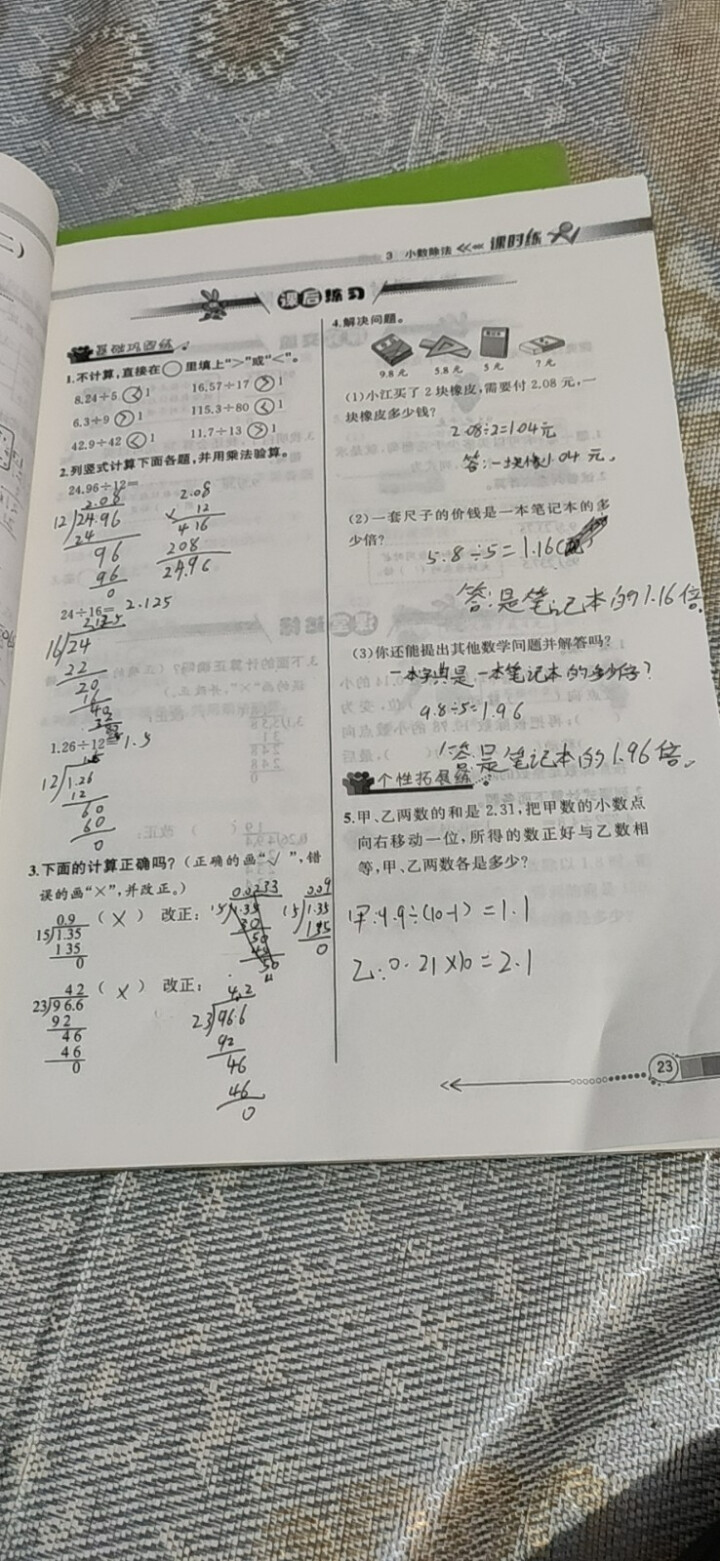 3 小数除法 课时练
课后练习
基础巩固练
1.不计算,直接在○里填上“>”或“<”。
8.24÷5 < 1 16.57÷17 > 1
6.3÷9 > 1 115.3÷80 < 1
42.9÷42 < 1 11.7÷13 > 1
2.列竖式计算下面各题,并用乘法验算。
24.96÷12=
2.08 2.08
12 24.96 × 12
24 4 16
96 208
96 24.96
0
24÷16= 2.125
16 24
22
20
16
40
32
1.26÷12= 1.5
12 1.26
12
60
60
0
3.下面的计算正确吗?(正确的画“√”,错
误的画“×”,并改正。)
0.9 (×) 改正: 0.0233 0.09
15 1.35 15 1.35 15 1.35
1 3 5 30 135
0 50 0
4 2 (×) 改正: 4.2
23 9 6.6 23 96.6
9 2 92
4 6 46
4 6 46
0 0
4.解决问题。
9.8 元 5.8 元 5 元 ? 元
(1)小江买了 2 块橡皮,需要付 2.08 元,一
块橡皮多少钱?
2.08÷2=1.04元
答:一块橡1.04元。
(2)一套尺子的价钱是一本笔记本的多
少倍?
5.8÷5=1.16
答:是笔记本的1.16倍。
(3)你还能提出其他数学问题并解答吗?
一本字典是一本笔记本的多少倍?
9.8÷5=1.96
答是笔记本的1.96倍。
个性拓展练
5.甲、乙两数的和是 2.31,把甲数的小数点
向右移动一位,所得的数正好与乙数相
等,甲、乙两数各是多少?
甲:9.9÷(10-1)=1.1
乙:0.21×10=2.1
23